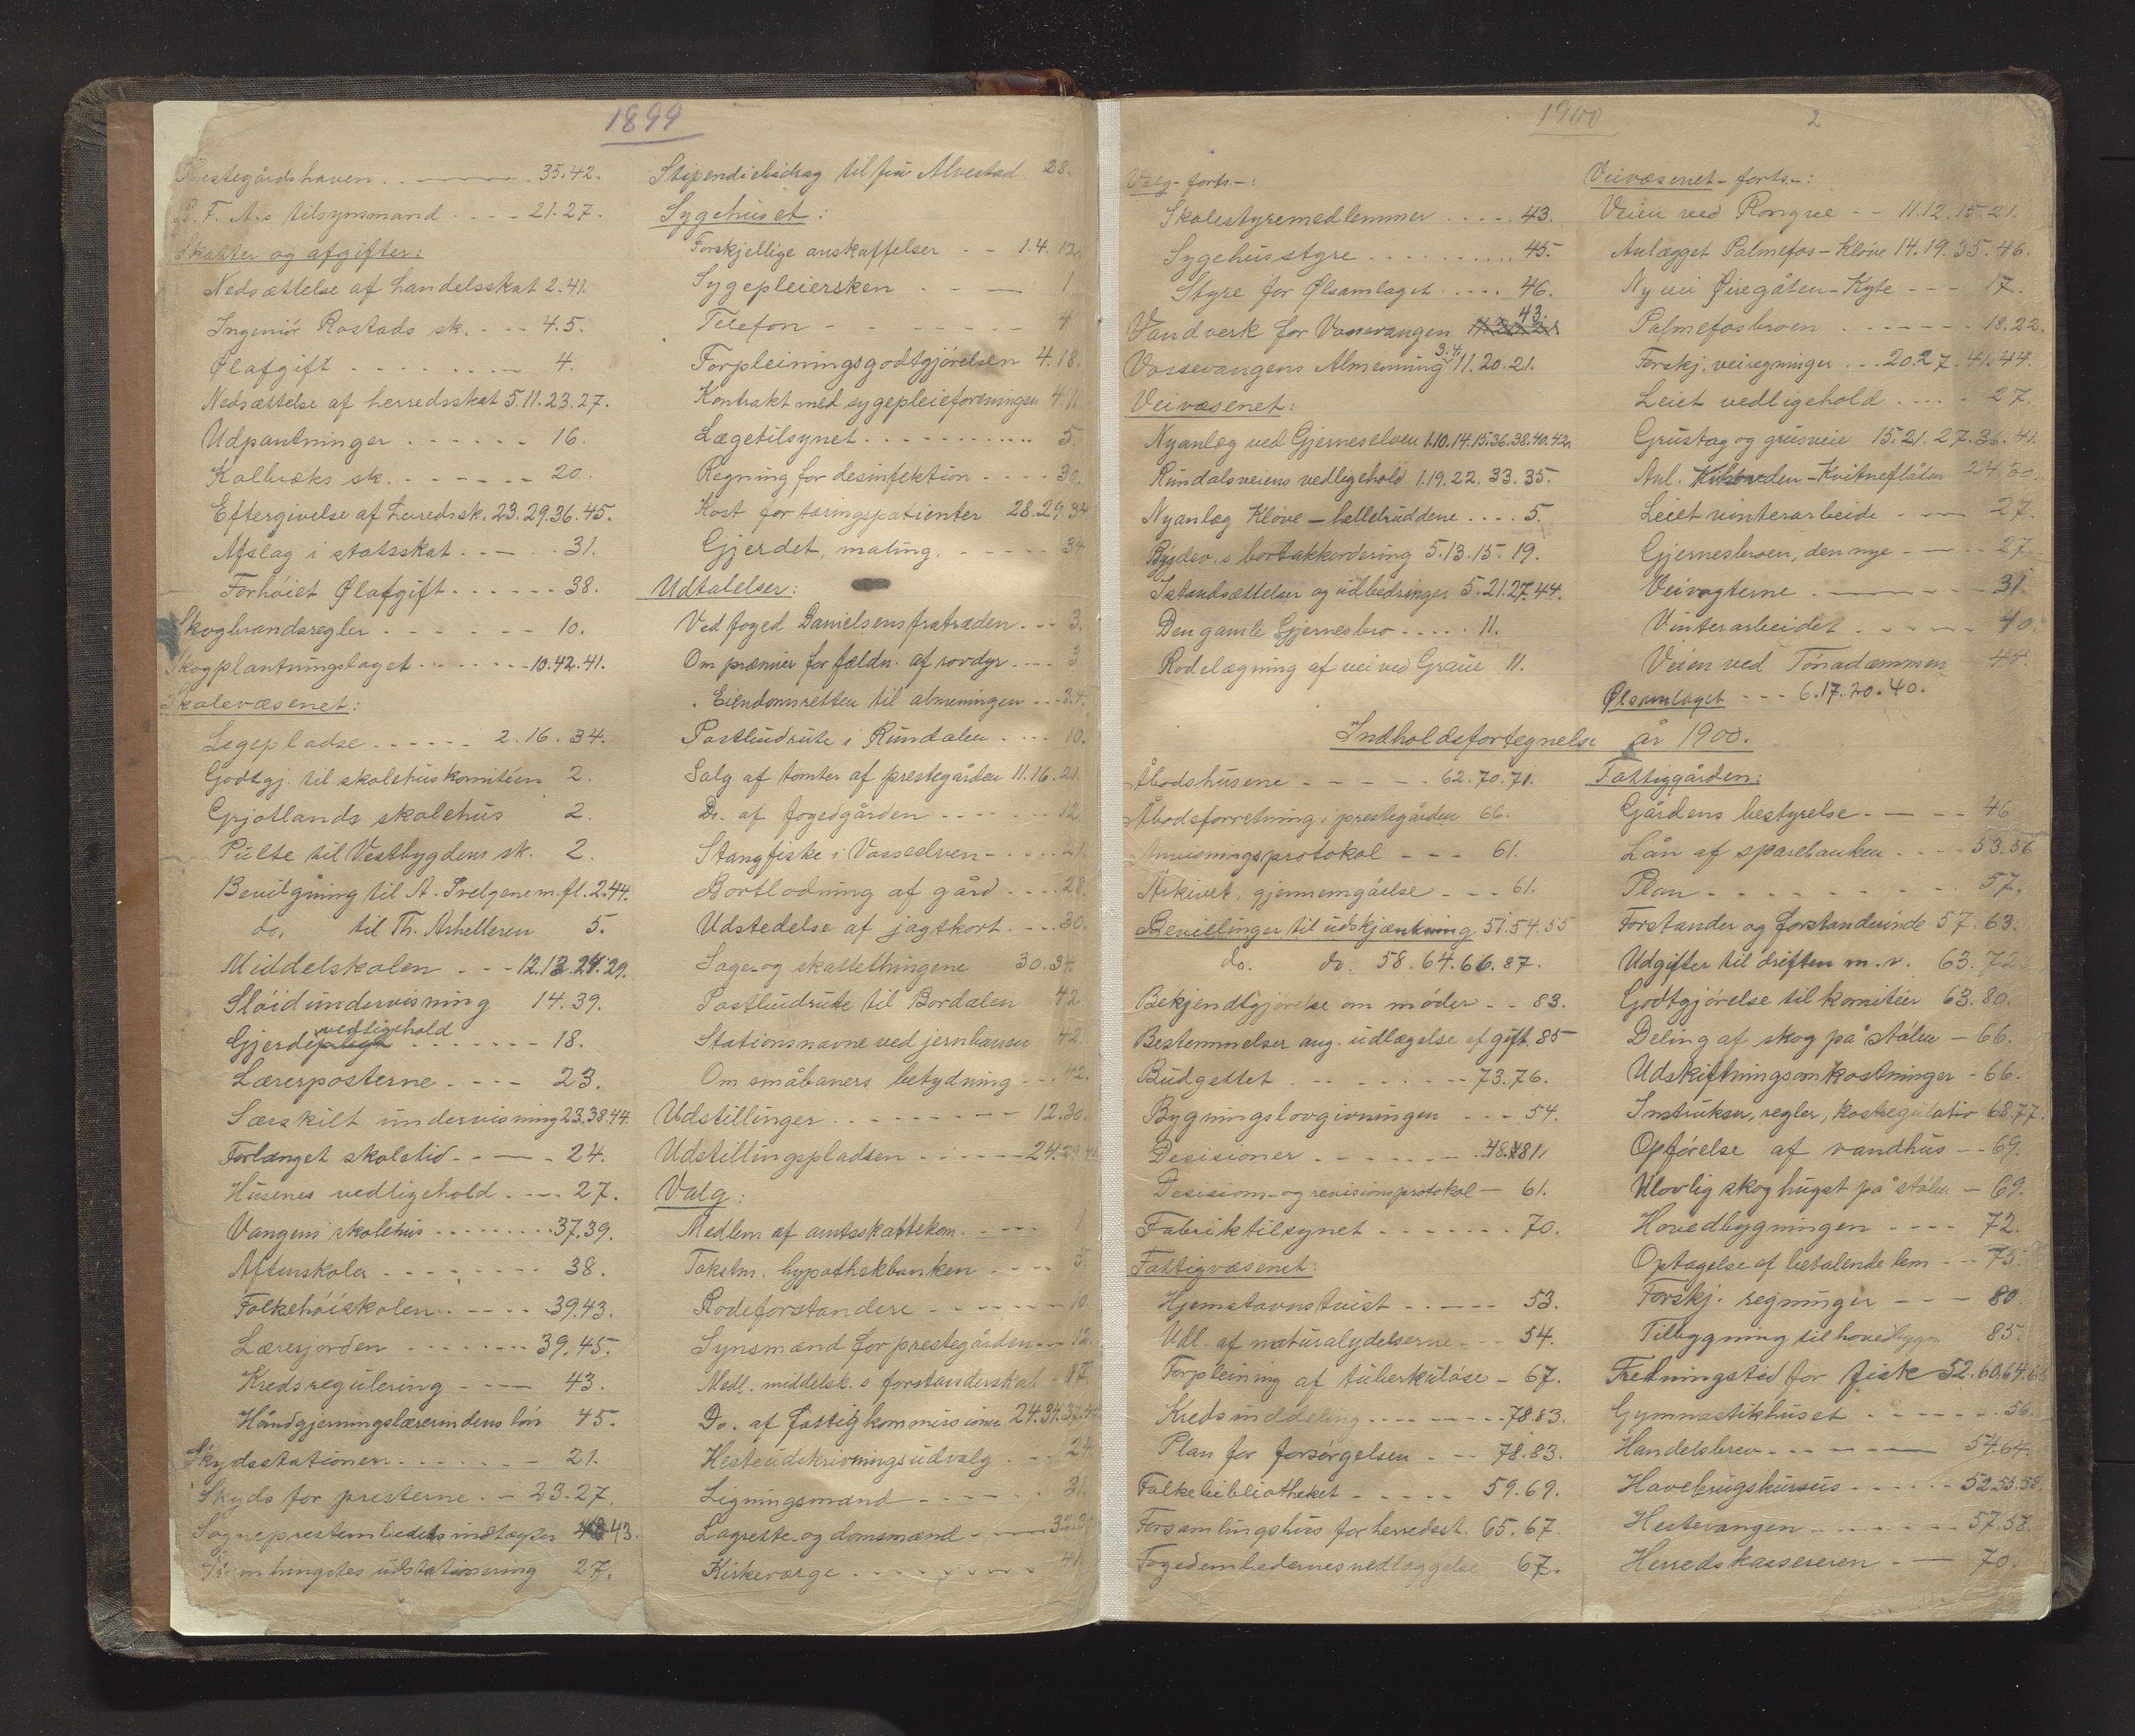 1899
Prestegårdshaven 35.42.
S. F. A.s tilsynsmand 21.27.
Skatter og afgifter:
Nedsættelse af handelsskat 2.41.
Ingeniör Rostads sk. 4.5.
Ølafgift 4.
Nedsættelse af herredsskat 5.11.23.27.
Udpantninger 16.
Kolbræks sk. 20.
Eftergivelse af herredssk. 23.29.36.45.
Afslag i statsskat 31.
Forhöiet Ølafgift 38.
Skogbrandsregler 10.
Skogplantningslaget 10.42.41.
Skolevæsenet:
Legepladse 2.16.34.
Godtgj. til skolehuskomitéen 2.
Gjotlands skolehus 2.
Pulte til Vestbygdens sk. 2.
Bevilgning til A. m. fl. 2.44.
do. til Th. Arhelleren 5.
Middelskolen 12.13.24.29.
Slöidundervisning 14.39.
Gjerdepligt vedligehold 18.
Lærerposterne 23.
Særskilt undervisning 23.38.44.
Forlænget skoletid 24.
Husenes vedligehold 27.
Vangens skolehus 37.39.
Aftenskoler 38.
Folkehöiskolen 39.43.
Lærerjorden 39.45.
Kredsregulering 43.
Håndgjerningslærerindens lön 45.
Skydsstationer 21.
Skyds for presterne 23.27.
Sogneprestembedets indtægter 43.
hingstes udstationering 27.
Stipendiebidrag til frü Alvestad 28.
Sygehuset:
Forskjellige anskaffelser 1.4.12.
Sygepleiersken 1
Telefon 4
Forpleiningsgodtgjörelsen 4.18.
Kontrakt med sygepleieforeningen 4.11.
Lægetilsynet 5.
Regning for desinfektion 30.
Kost for tæringspatienter 28.29.34
Gjerdet, maling. 34
Udtalelser:
Ved foged Danielsens fratræden 3.
Om præmier for fældn. af rovdyr 3
" Eiendomsretten til almenningen 3.4.
Postlandrute i Rundalen 10.
Salg af tomter af prestegården 11.16.21.
Do. af fogedgården 12
Stangfiske i Vosseelven 21.
Bortlodning af gård 28.
Udstedelse af jagtkort 30.
Sage- og skattethingene 30.34.
Postlandrute til Bordalen 42
Stationsnavne ved jernbanen 42
Om småbaners betydning 42.
Udstillinger 12.30.
Udstillingspladsen 24.29.41.
Valg:
Medlem af amtsskattekom. 1
Takstm. hypothekbanken 5
Rodeforstandere 10
Synsmænd for prestegården 12.
Medl. middelsk.s forstanderskab 17.
Do. af fattigkommissionen 24.34.37.44
Hesteudskrivningsudvalg 24.
Ligningsmænd 31.
Lagrette- og domsmænd
Kirkeværge 41.
1900
2
Valg-forts-:
Skolestyremedlemmer 43.
Sygehusstyre 45.
Styre for Ølsamlaget 46.
Vandverk for Vossevangen 43.
Vossevangens Almenning 3.4. 11.20.21.
Veivæsenet:
Nyanlæg ved Gjerneselven 1.10.14.15.36.38.40.42.
Rundalsveiens vedligehold 1.19.22.33.35.
Nyanlæg Klöve – helleruddene 5.
Bygdev.s bortakkordering 5.13.15.19.
Istandsættelser og udbedringer 5.21.27.44.
Den gamle Gjernesbro 11.
Rodelægning af vei ved Graue 11.
Veivæsenet-forts.-:
Veien ved Rongve 11.12.15.21.
Anlægget Palmefos–Klöve 14.19.35.46.
Ny vei Øiregåten–Kyte 17.
Palmefosbroen 18.22.
Forskj. veiregninger 20.27.41.44.
Leiet vedligehold 27.
Grustag og grusveie 15.21.27.36.41.
Anl. –Kvitneflåten 24.30.
Leiet vinterarbeide 27.
Gjernesbroen, den nye 27
Veivogterne 31.
Vinterarbeidet 40.
Veien ved Tónadammen 44.
Ølsamlaget 6.17.20.40.
Indholdsfortegnelse år 1900.
Åbodshusene 62.70.71.
Åbodsforretning i prestegården 66.
Anvisningsprotokol 61.
Arkivet, gjennemgåelse 61.
Bevillinger til udskjænkning 51.54.55
do. do. 58.64.66.87.
Bekjendtgjörelse om möder 83.
Bestemmelser ang. udlægelse af gift. 85
Budgettet 73.76.
Bygningslovgivningen 54.
Desisioner 48.81.
Desisions- og revisionsprotokol 61.
Fabriktilsynet 70.
Fattigvæsenet:
Hjemstavnstvist 53.
Udl. af naturalydelserne 54.
Forpleining af tuberkulöse 67.
Kredsinddeling 78.83.
Plan for forsörgelsen 78.83.
Folkebibliotheket 59.69.
Forsamlingshus for herredsst. 65.67.
Fogedembedernes nedlæggelse 67.
Fattiggården:
Gårdens bestyrelse 46
Lån af sparebanken 53.56
Plan 57.
Forstander og forstanderinde 57.63.
Udgifter til driften m.v. 63.72
Godtgjörelse til komitéer 63.80.
Deling af skog på stölen 66.
Udskiftningsomkostninger 66.
Instrukser, regler, kostregulativ 68.77.
Opförelse af vandhus 69.
Ulovlig skoghugst på stölen 69.
Hovedbygningen 72.
Optagelse af betalende lem 75
Forskj. regninger 80
Tilbygning til hovedbygn 85.
Fredningstid for fisk 52.60.64.
Gymnastikhuset 56.
Handelsbrev 54.64.
Havebrugskursus 52.53.58.
Hestevangen 57.58.
Herredskassereren 70.